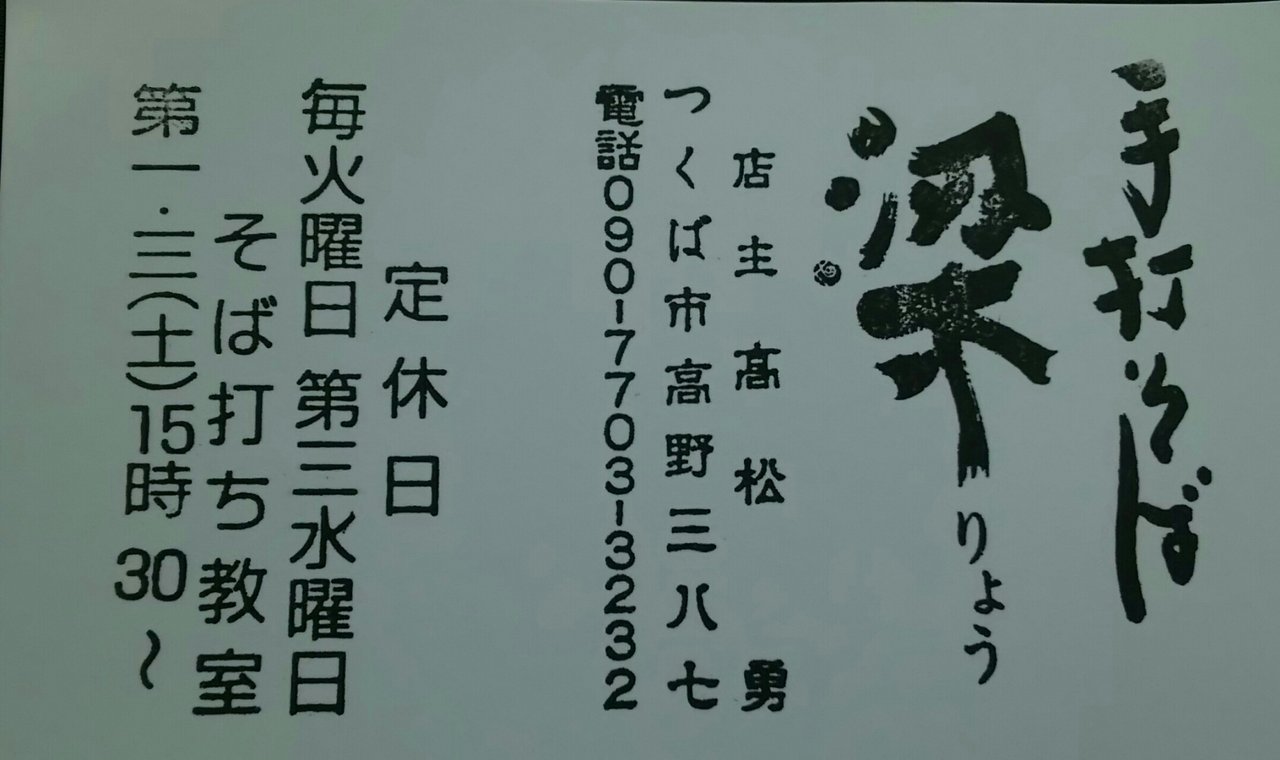 手打そば
梁
りょう
店主 髙松 勇
つくば市高野三八七
電話090-7703-3232
定休日
毎火曜日 第三水曜日
そば打ち教室
第一・三(土)15時30〜